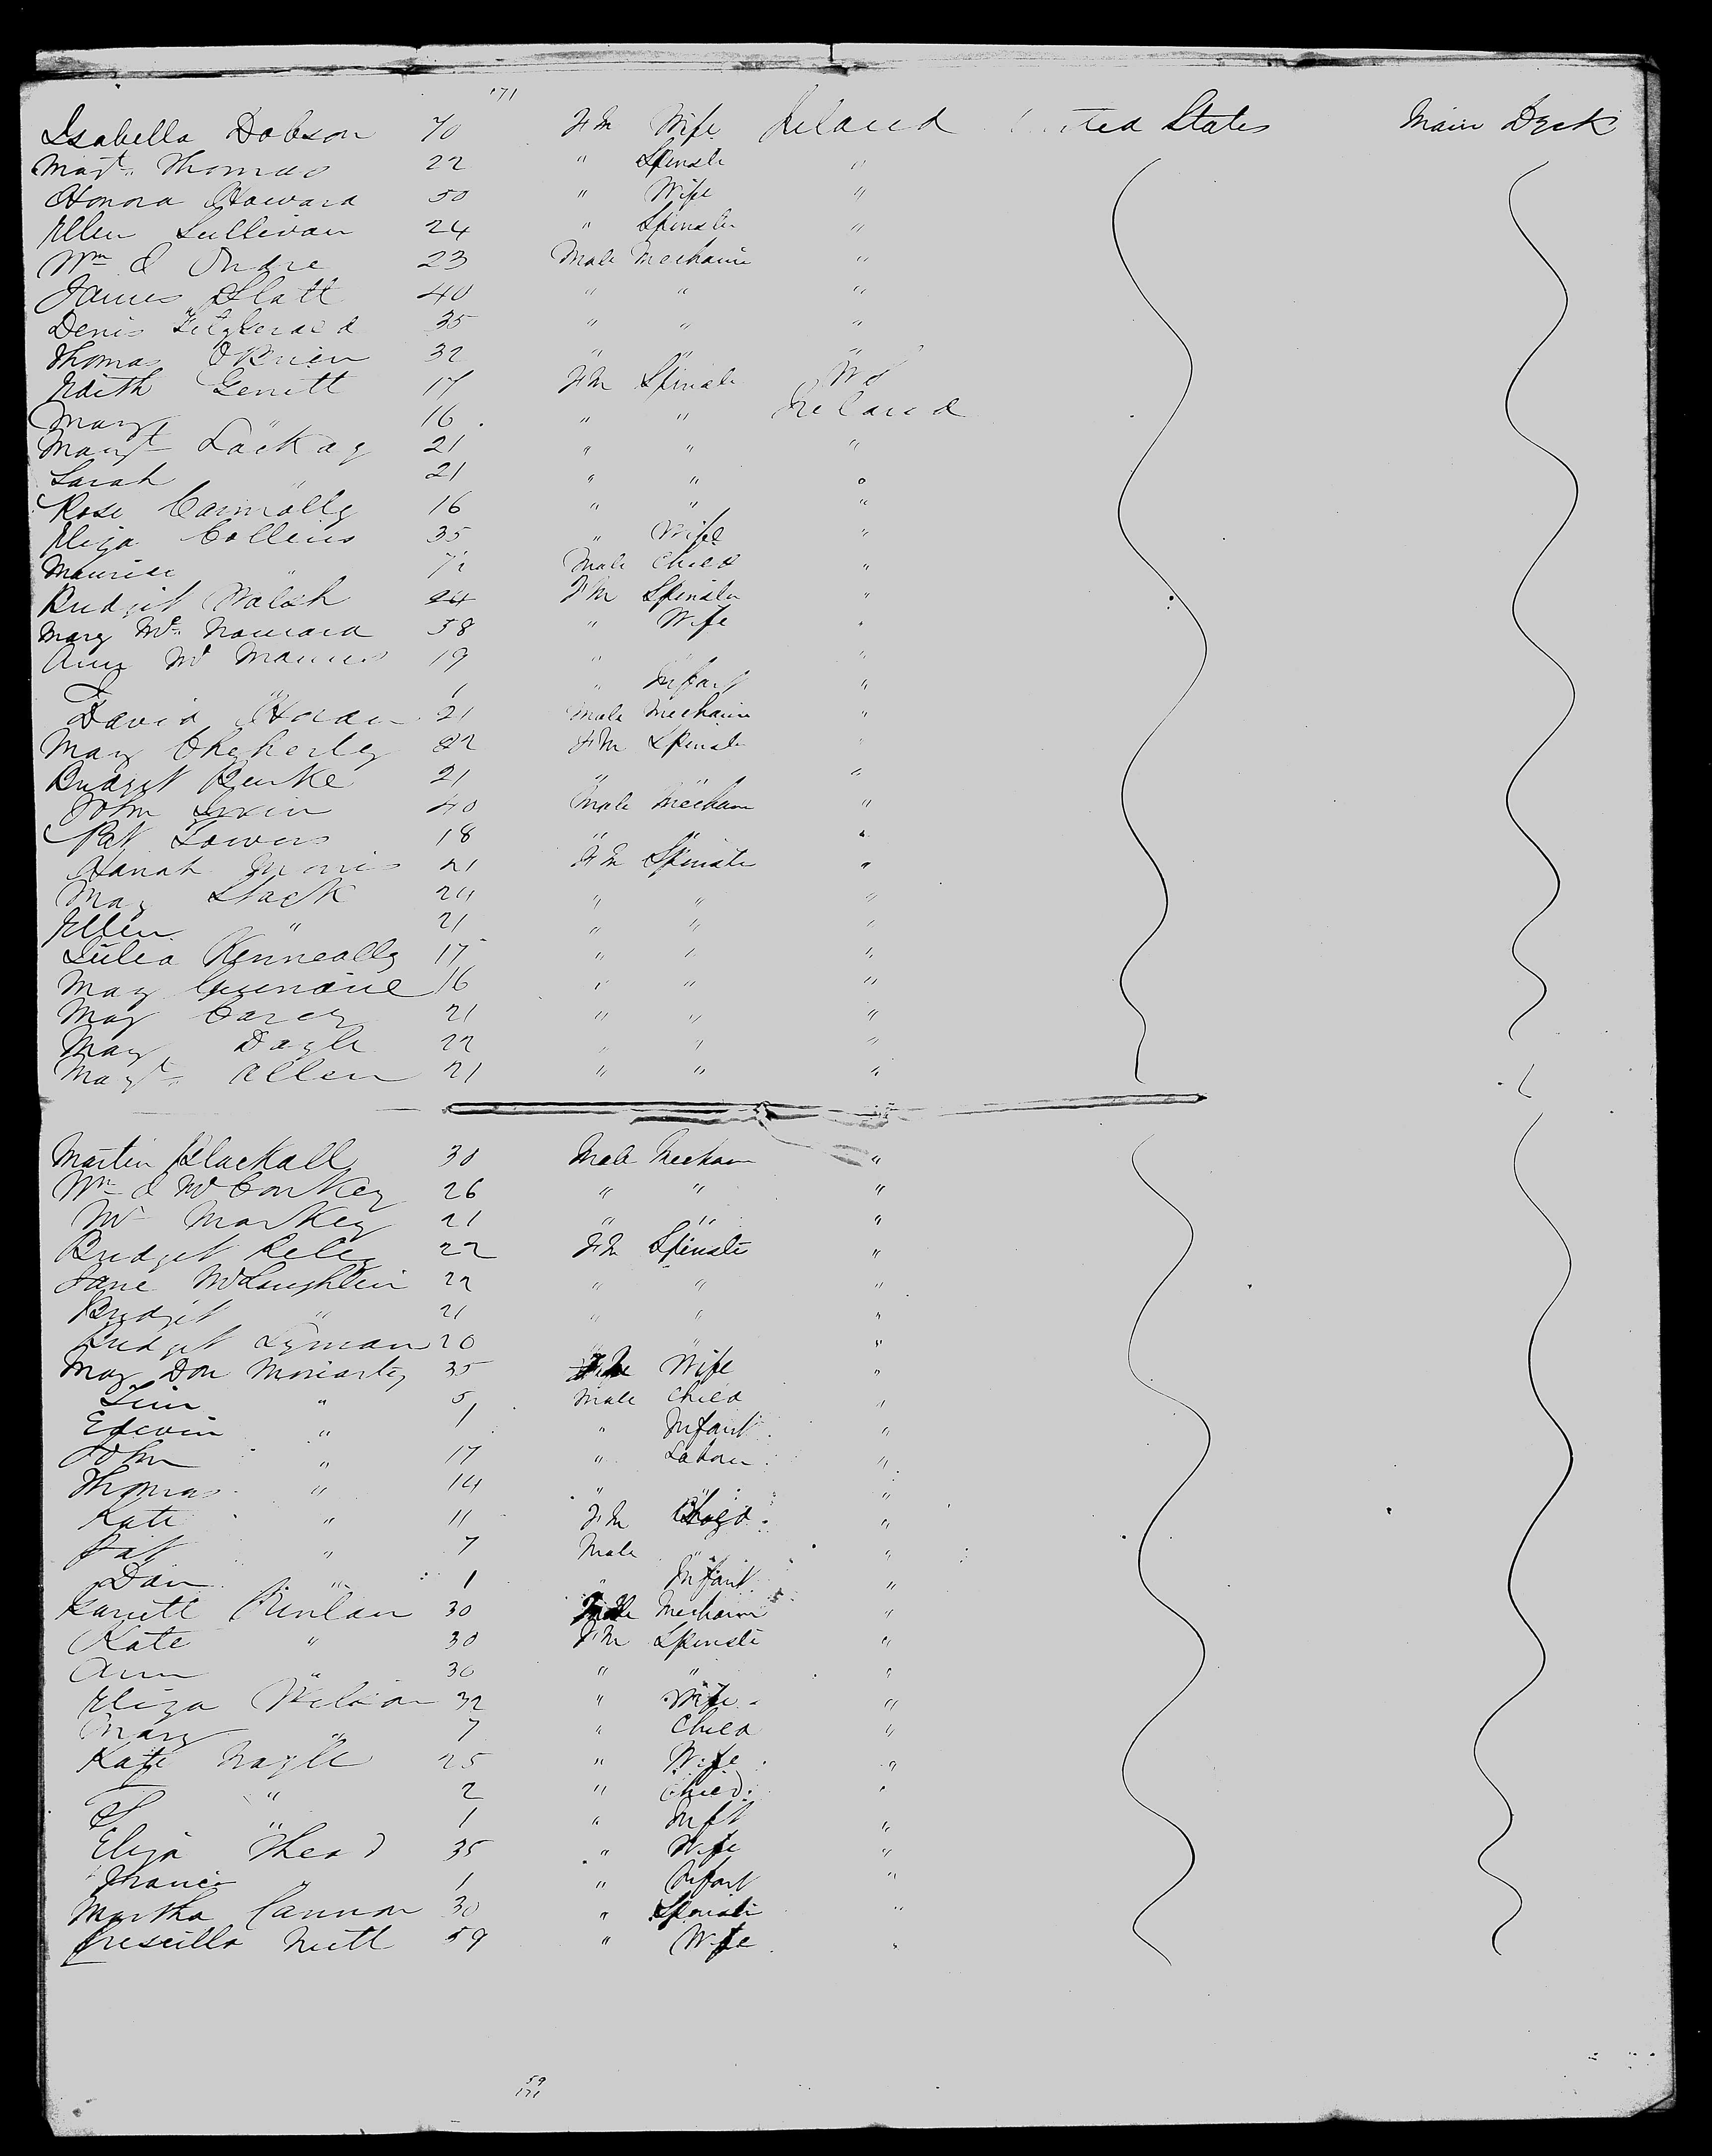 171
Isabella Dobson 70 Fm Wife Ireland United States Main Deck
Margt. Thomas 22 " Spinster "
Honora Howard 50 " Wife "
Ellen Sullivan 24 " Spinster "
Wm J 23 Male Mechanic "
James Slatt 40 " " "
Denis Fitzgerald 35 " " "
Thomas O'Brien 32 " " "
Edith Gerrett 17 Fm Spinster
Mary " 16 " " Ireland
Margt 21 " " "
Sarah " 21 " " "
Rose Connolly 16 " " "
Eliza Collins 35 " Wife "
Maurice " Male Child "
Bridget Walsh 24 Fm Spinster "
Mary McNamara 58 " Wife "
Ann McManus 19 " " "
1 " Infant "
David Horan 21 Male Mechanic "
Mary 22 Fm Spinster "
Bridget Burke 21 " " "
John 40 Male Mechan "
Pat Towers 18 " " "
Hanah Morris 21 Fm Spinster "
Mary Stack 24 " " "
Ellen " 21 " " "
Julia Kenneally 17 " " "
Mary 16 " " "
Mary Carey 21 " " "
Mary Doyle 22 " " "
Margt. Allen 21 " " "
Martin Blackall 30 Male Mechan "
Wm J McConkey 26 " " "
Markey 21 " " "
Bridget Reley 22 Fm Spinster "
Jane McLoughlin 22 " " "
Bridget " 21 " " "
Bridget Lyman 20 " " "
Mary Don Moriarty 35 Fm Wife "
Tim " 5 Male Child "
Edwin " 1 " Infant "
John " 17 " Labour "
Thomas " 14 " " "
Kate " 11 Fm Child "
Pat " 7 Male " "
Dan " 1 " Infant "
Garrett Quinlan 30 Male Mechanic "
Kate " 30 Fm Spinster "
Ann " 30 " " "
Eliza Wilson 32 " Wife "
Mary " 7 " Child "
Kate Nagle 25 " Wife "
" 2 " Child "
" 1 " Inft "
Eliza Thead 35 " Wife "
" 1 " Infant "
Martha Cannon 30 " Spinster "
Prescilla Nutt 59 " Wife "
59
171